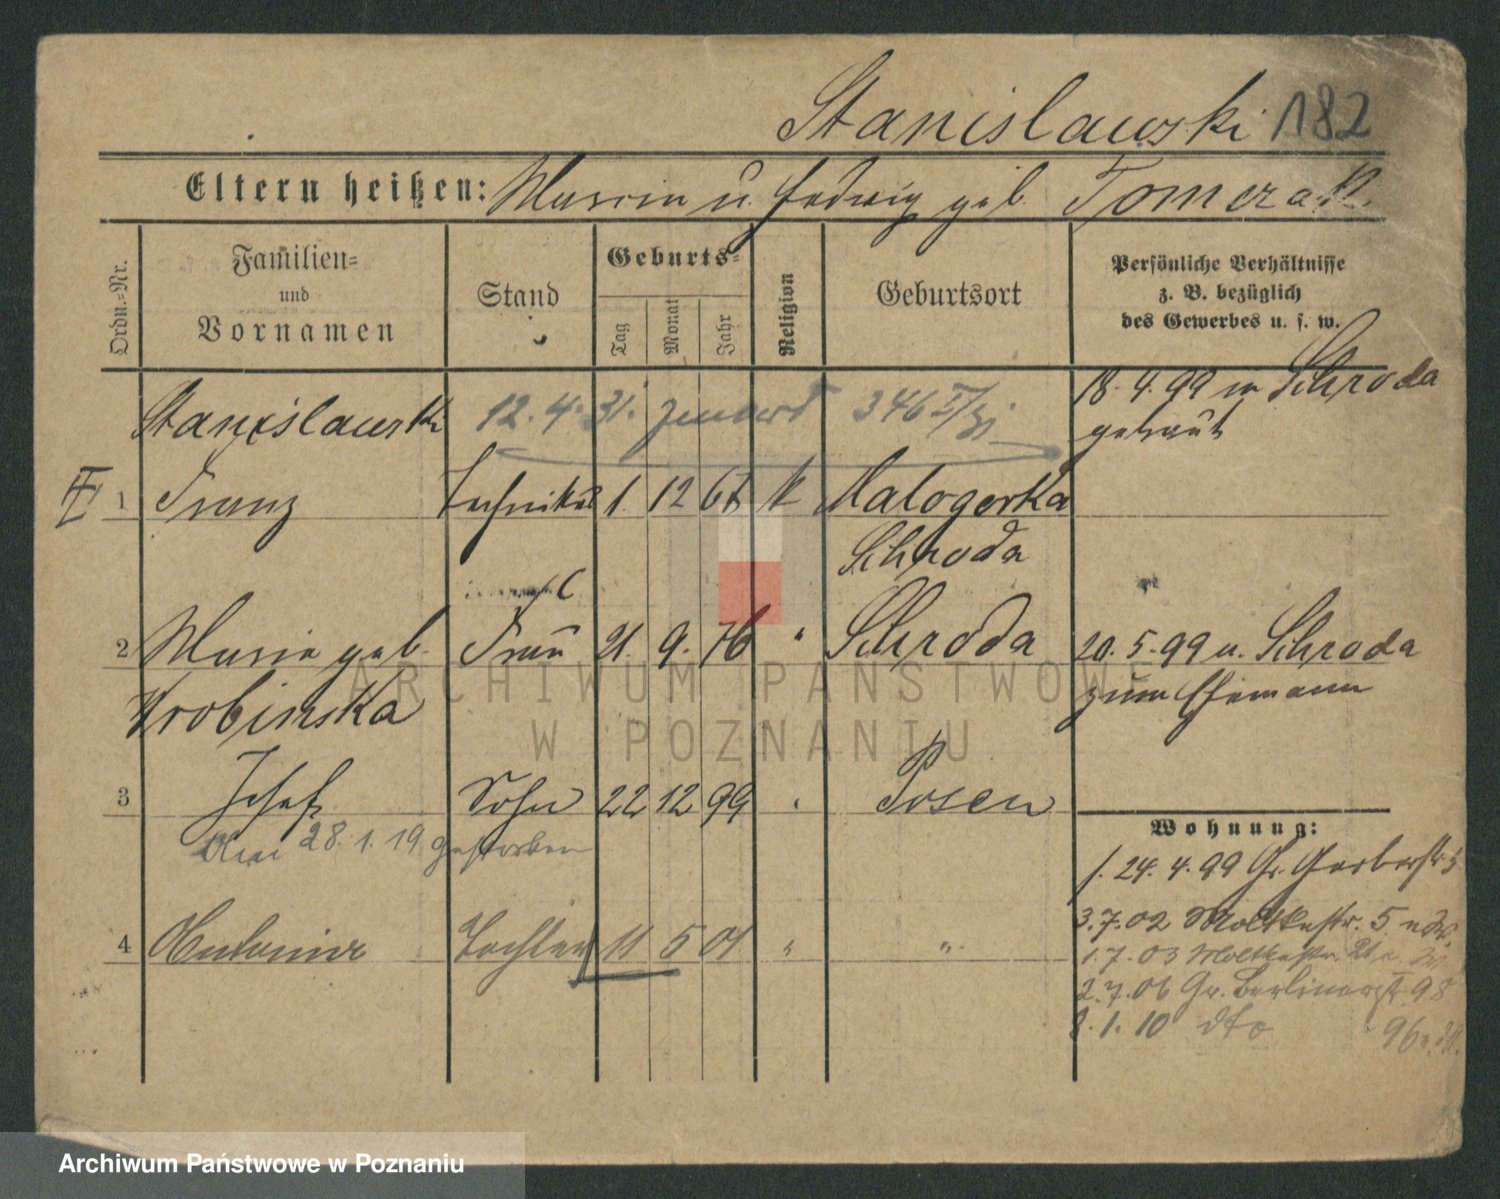 Stanislawski 182
Eltern heißen: Marcin u. Hedwig geb. Tomczak.
Ordn.=Nr.
Familien=
und
Vornamen
Stand
Geburts=
Tag
Monat
Jahr
Religion
Geburtsort
Persönliche Verhältnisse
z. B. bezüglich
des Gewerbes u. s. w.
Stanislawski 12. 4. 31. 346
18. 4. 99 in Schroda
getraut
1 Franz Techniker 1 12 67 k Malogorka
Schroda
2 Maria geb. Frau 21. 9. 76 " Schroda
Wrobinska
20. 5. 99 v. Schroda
zum Ehemann
3 Josef Sohn 22 12 99 " Posen
Am 28. 1. 19 gestorben
4 Antonie Tochter 11 5 01 " "
Wohnung:
24. 4. 99 Gr. Gerberstr. 5
3. 7. 02 Moltkestr. 5
1. 7. 03 Moltkestr.
2. 7. 06 Gr. Berlinerst. 98
8. 1. 10 dto 96
ARCHIWUM PAŃSTWOWE
W POZNANIU
Archiwum Państwowe w Poznaniu